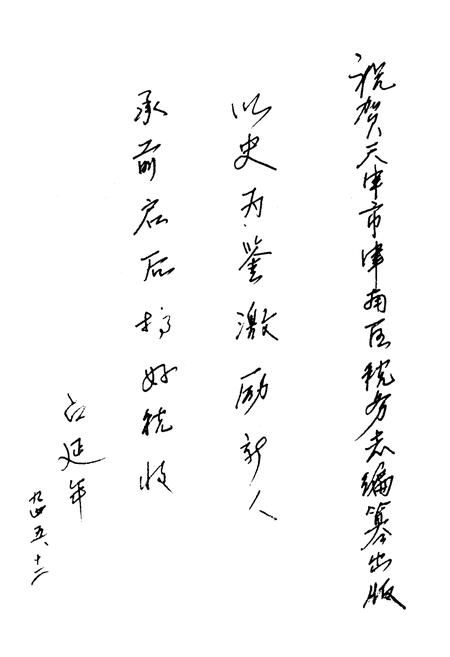 祝贺天津市津南区税务志编纂出版
以史为鉴激励新人
承前启后搞好税收
延年
九四五、十二